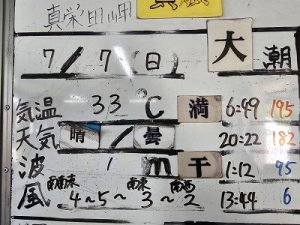 真栄田岬
7/7(日) 大潮
気温 33℃ 満 6:49 195
天気 晴/曇 20:22 182
波 1m 干 1:12 95
風 南南東 4~5~ 南東 3~ 南西 2 13:44 6